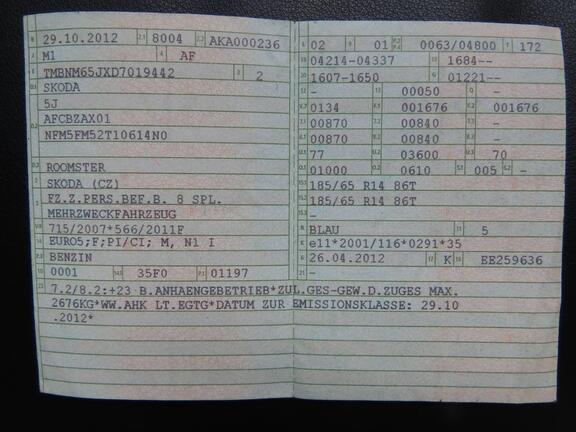 29.10.2012 8004 AKA000236
M1 AF
TMBNM65JXD7019442 2
SKODA
5J
AFCBZAX01
NFM5FM52T10614N0
ROOMSTER
SKODA (CZ)
FZ.Z.PERS.BEF.B. 8 SPL.
MEHRZWECKFAHRZEUG
715/2007*566/2011F
EURO5;F;PI/CI; M, N1 I
BENZIN
0001 35F0 01197
02 01 0063/04800 172
04214-04337 1684--
1607-1650 01221--
- 00050 -
0134 001676 001676
00870 00840 -
00870 00840 -
77 03600 70
01000 0610 005 -
185/65 R14 86T
185/65 R14 86T
-
BLAU 5
e11*2001/116*0291*35
26.04.2012 K EE259636
-
7.2/8.2:+23 B.ANHAENGEBETRIEB*ZUL.GES-GEW.D.ZUGES MAX.
2676KG*WW.AHK LT.EGTG*DATUM ZUR EMISSIONSKLASSE: 29.10
.2012*